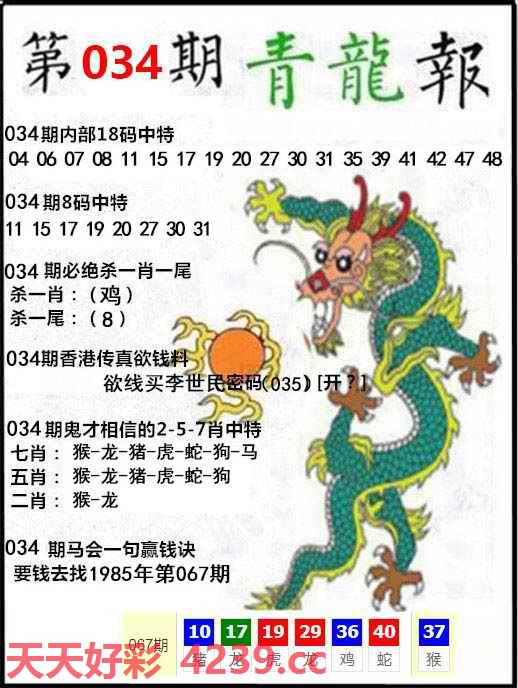 第034期青龍報
034期内部18码中特
04 06 07 08 11 15 17 19 20 27 30 31 35 39 41 42 47 48
034期8码中特
11 15 17 19 20 27 30 31
034 期必绝杀一肖一尾
杀一肖：(鸡)
杀一尾：(8)
034期香港传真欲钱料
欲线买李世民密码(035) [开？]
034期鬼才相信的2-5-7肖中特
七肖：猴-龙-猪-虎-蛇-狗-马
五肖：猴-龙-猪-虎-蛇-狗
二肖：猴-龙
034 期马会一句赢钱诀
要钱去找1985年第067期
067期 10 17 19 29 36 40 37
猪 龙 虎 龙 鸡 蛇 猴
天天好彩 4239.cc